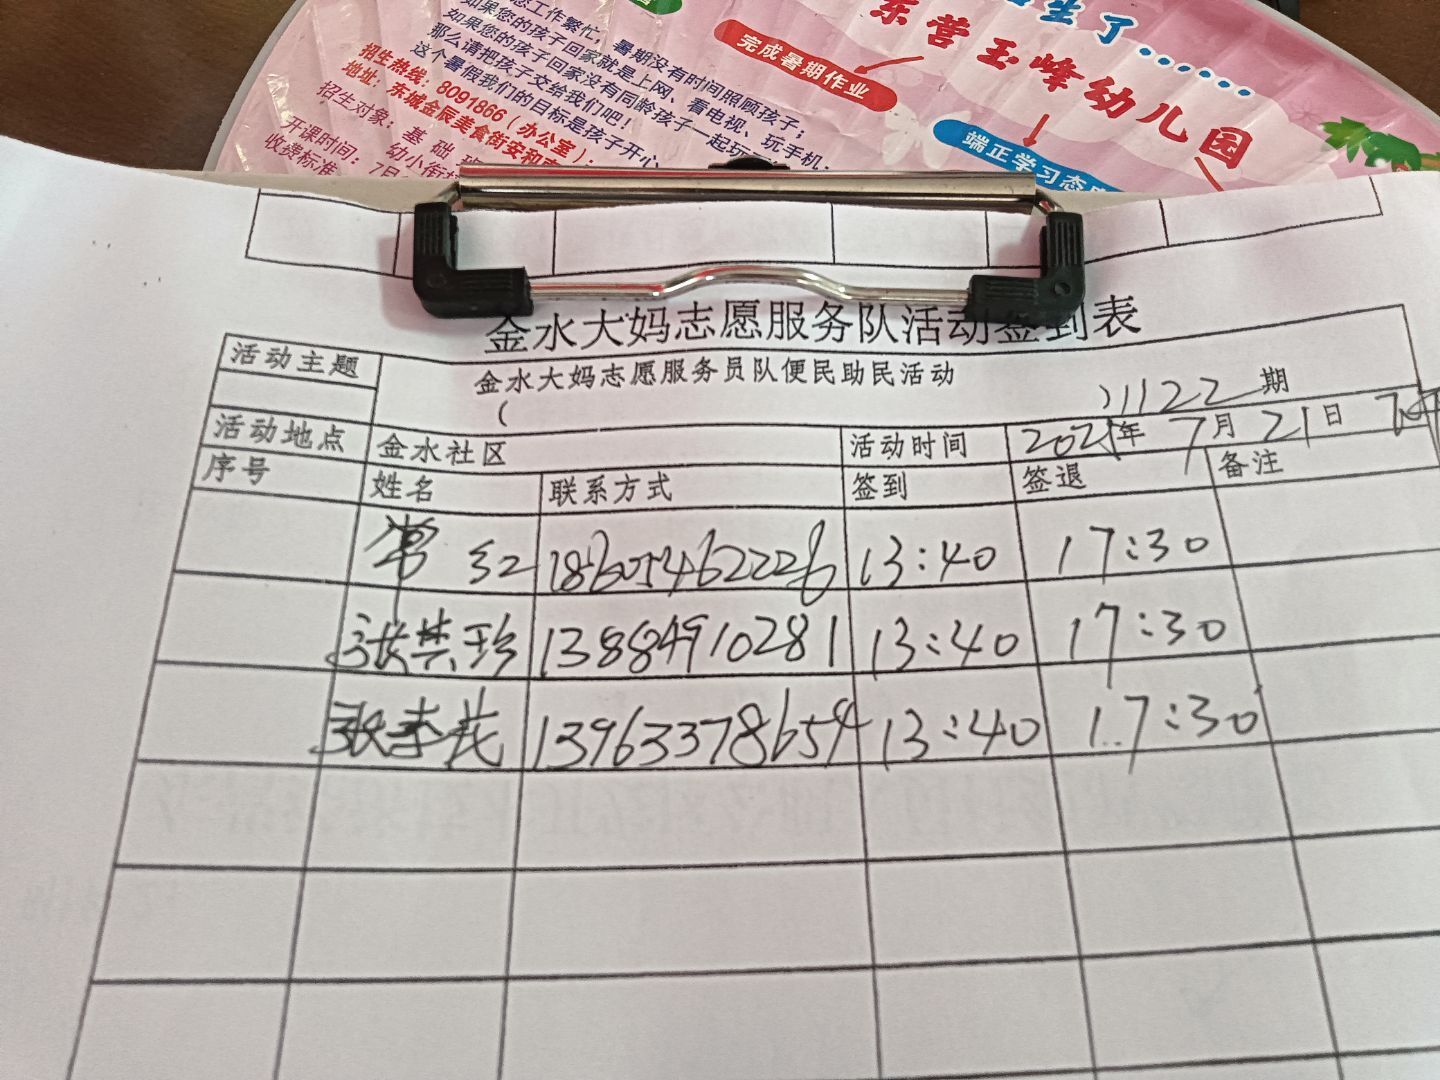 生了······
东营玉峰幼儿园
工作繁忙，暑期没有时间照顾孩子；
如果您的孩子回家就是上网、看电视、玩手机；
如果您的孩子回家没有同龄孩子一起玩
那么请把孩子交给我们吧！
这个暑假我们的目标是孩子开心
招生热线：8091866（办公室）；
地址：东城金辰美食街安和
招生对象：基础班
幼小衔接
开课时间：7月
收费标准
完成暑期作业
端正学习态度
金水大妈志愿服务队活动签到表
活动主题 金水大妈志愿服务员队便民助民活动
（ ）1122期
活动地点 金水社区 活动时间 2021年7月21日
序号 姓名 联系方式 签到 签退 备注
常红 18605462226 13:40 17:30
张芸珍 13884910281 13:40 17:30
张秀花 13963378654 13:40 17:30